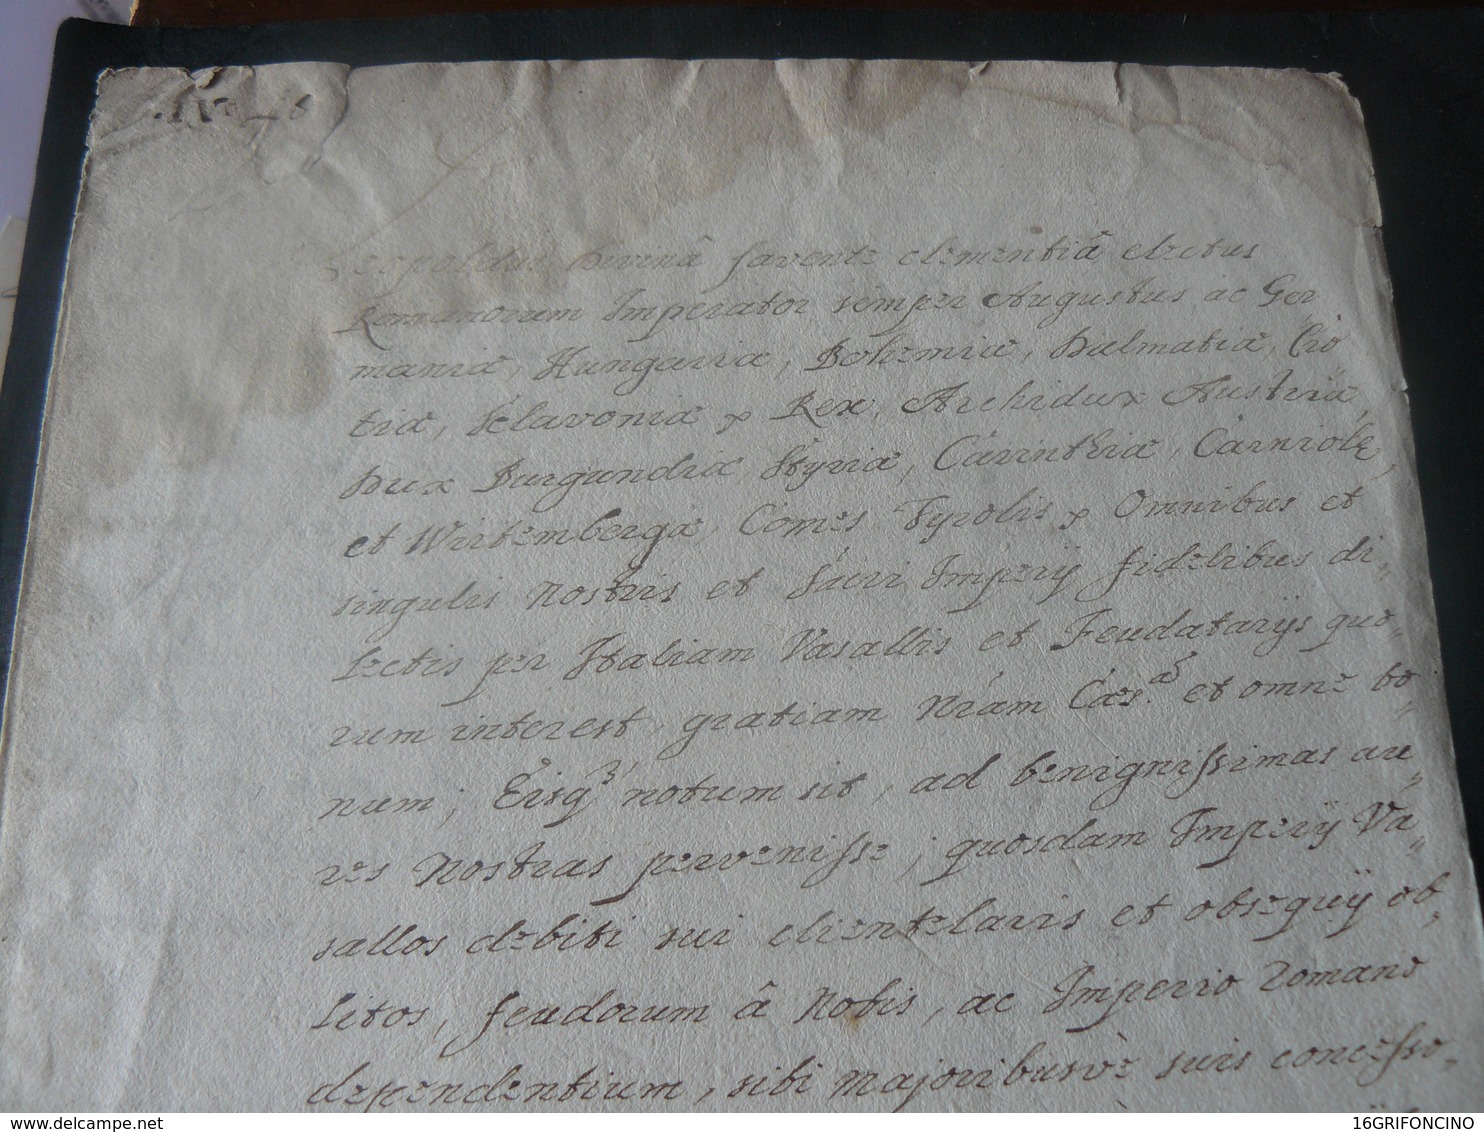 Leopoldus Divinâ favente clementiâ electus
Romanorum Imperator semper Augustus ac Ger
maniæ, Hungariæ, Bohemiæ, Dalmatiæ, Cro
tiæ, Sclavoniæ & Rex, Archidux Austriæ,
Dux Burgundiæ Styriæ, Carinthiæ, Carniolæ,
et Wirtembergæ, Comes Tyrolis & Omnibus et
singulis Nostris et Sacri Imperij fidelibus di-
lectis per Italiam Vasallis et Feudatarijs quo-
rum interest, gratiam Nràm Cæs.ª et omne bo
num; Eisq3 notum sit, ad benignissimas au-
res Nostras pervenisse; quosdam Imperij Va-
sallos debiti sui clientelaris et obsequij ob-
litos, feudorum â Nobis, ac Imperio Romano
dependentium, sibi Majoribusvè suis concesso-
www.delcampe.net
16GRIFONCINO